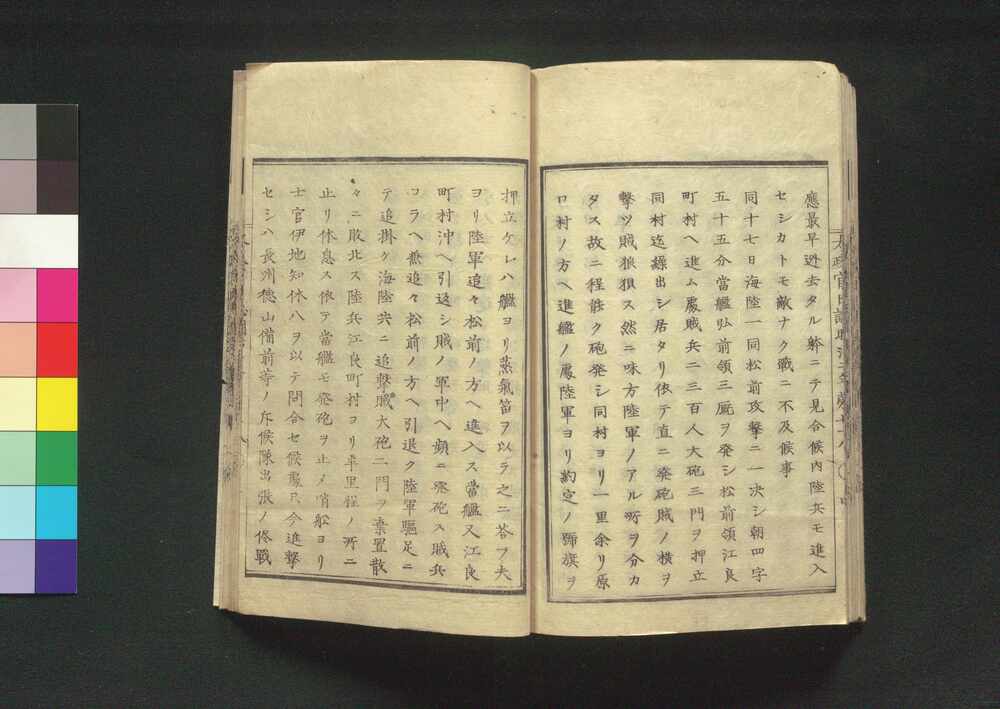 應最早逃去タル躰ニテ見合候内陸兵モ進入
セシカトモ敵ナク戰ニ不及候事
同十七日海陸一同松前攻撃ニ一决シ朝四字
五十五分當艦弘前領三厩ヲ発シ松前領江良
町村ヘ進ム處賊兵二三百人大砲三門ヲ押立
同村迄繰出シ居タリ依テ直ニ発砲賊ノ横ヲ
撃ツ賊狼狽ス然ニ味方陸軍ノアル所ヲ分カ
タス故ニ程能ク砲発シ同村ヨリ一里余リ原
口村ノ方ヘ進艦ノ處陸軍ヨリ約定ノ歸旗ヲ
押立ケレハ艦ヨリ蒸氣笛ヲ以ラ之ニ荅フ夫
ヨリ陸軍追々松前ノ方ヘ進入ス當艦又江良
町村沖ヘ引返シ賊ノ軍中ヘ頻ニ発砲ス賊兵
コラヘ兼追々松前ノ方ヘ引退ク陸軍驅足ニ
テ追掛ケ海陸共ニ追撃賊大砲二門ヲ棄置散
々ニ敗北ス陸兵江良町村ヨリ半里程ノ所ニ
止リ休息ス依テ當艦モ発砲ヲ止メ哨船ヨリ
士官伊地知休八ヲ以テ問合セ候處只今進撃
セシハ長州徳山備前等ノ斥候隊出張ノ侭戰